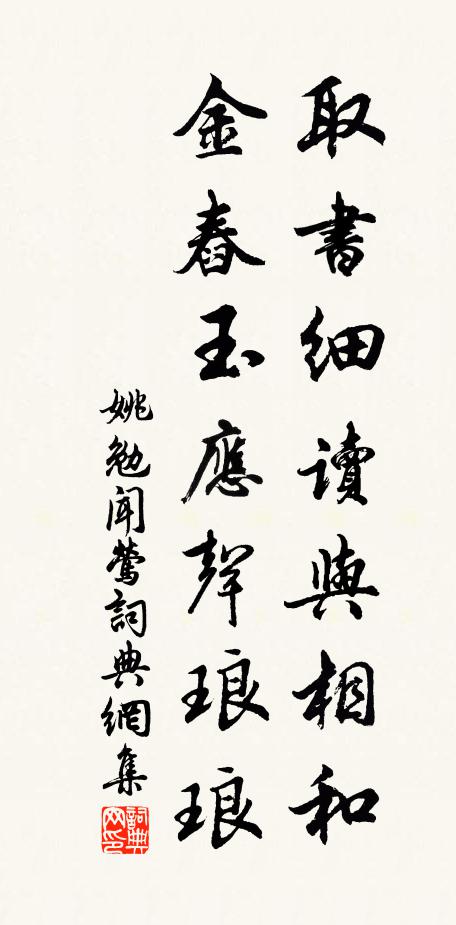 取書細讀與相和
金舂玉應聲琅琅
姚勉聞鶯詞典網集
詞典網印